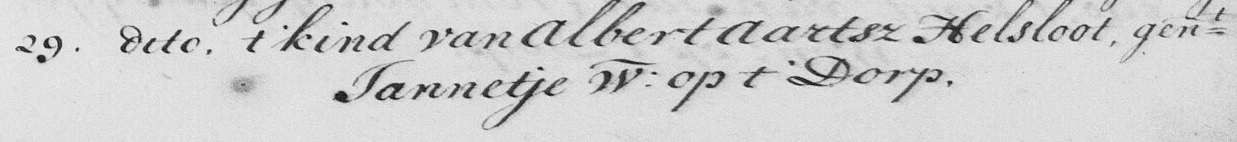 29. dito. t'kind van Albert Aartsz Helsloot, gen=t
Jannetje W: op t' Dorp.